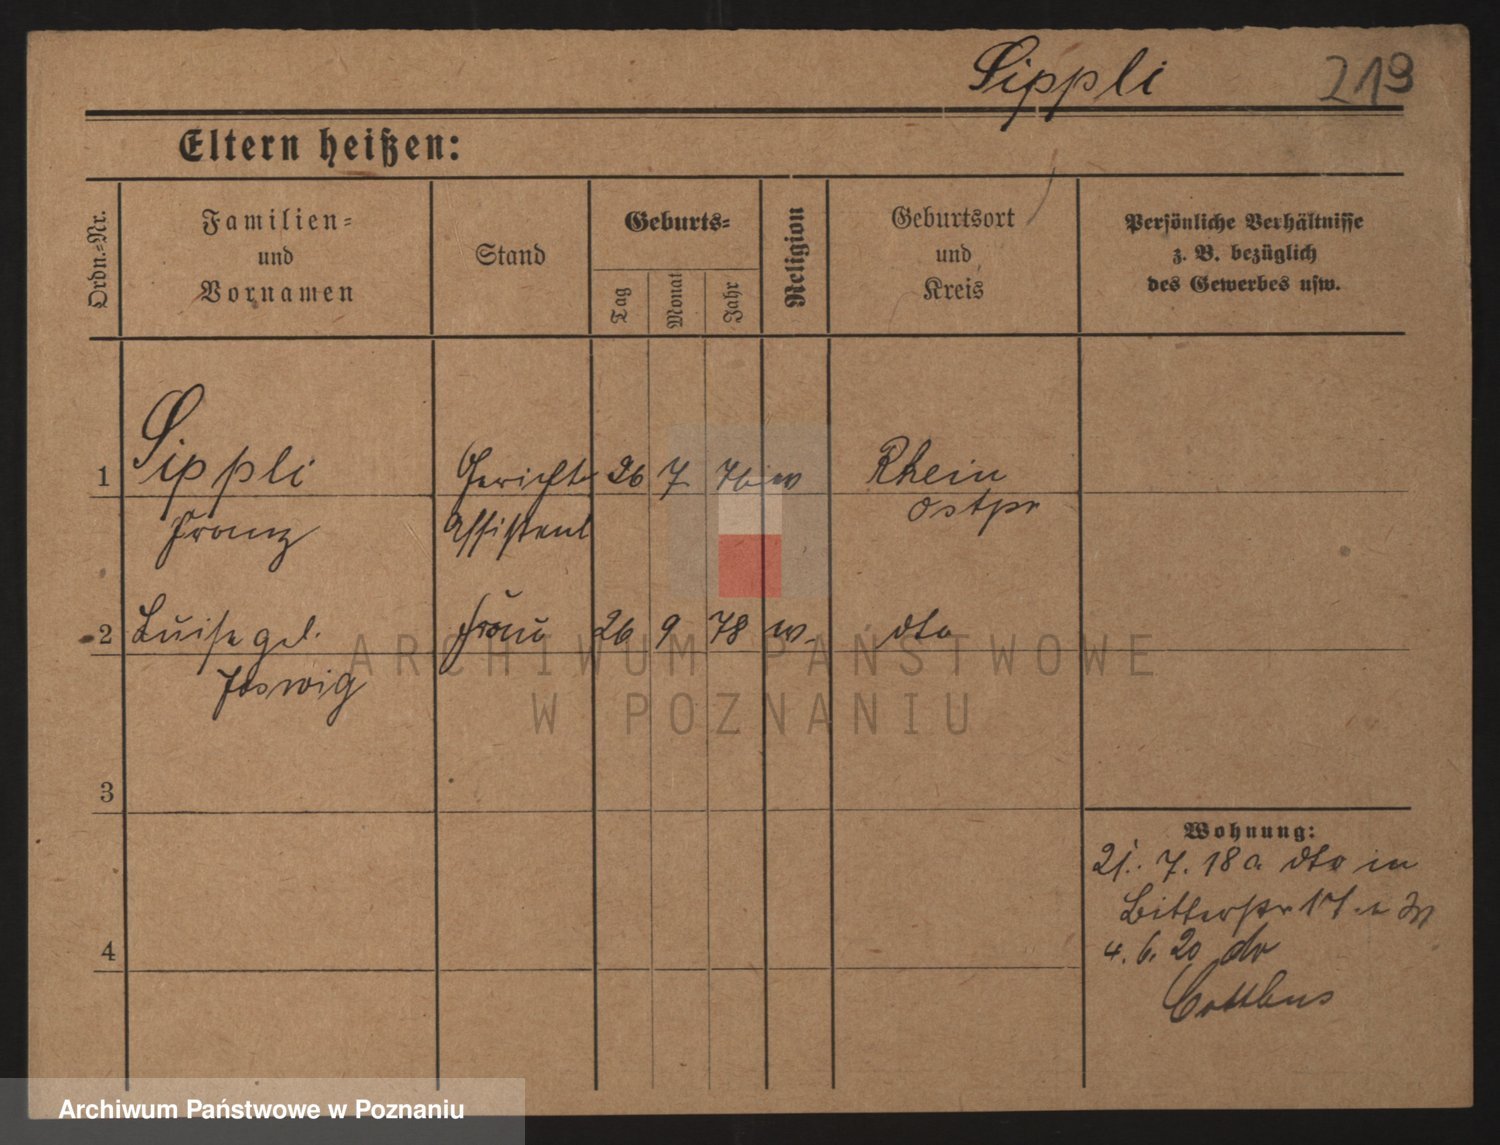 Sippli 219
Eltern heißen:
Ordn.-Nr.
Familien-
und
Vornamen
Stand
Geburts-
Tag
Monat
Jahr
Religion
Geburtsort
und
Kreis
Persönliche Verhältnisse
z. B. bezüglich
des Gewerbes usw.
1 Sippli Gerichts 26 7 76 w Rhein
Franz Assistent Ostpr
2 Luise geb. Frau 26 9 78 w. dto
3
4
Wohnung:
21. 7. 18 a dto in
Bitterstr
4. 6. 20
Cottbus
ARCHIWUM PAŃSTWOWE
W POZNANIU
Archiwum Państwowe w Poznaniu